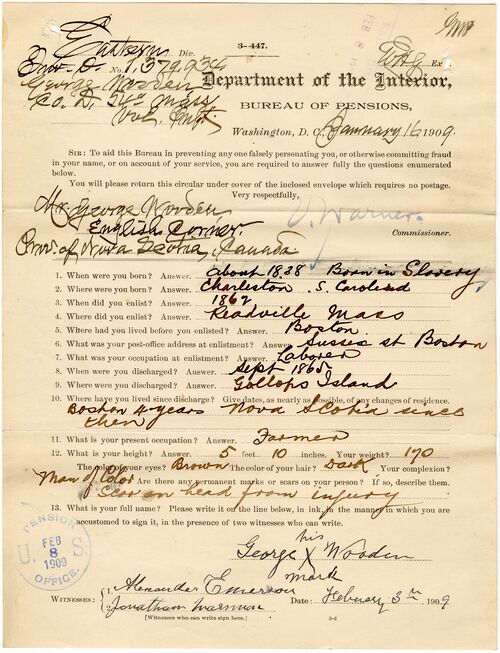 Eastern Div.
3-447.
Inv. O. No. 1,379,934
George Wooden
Co. D, 54" Mass
Vol. Inft.
Ex
Department of the Interior,
BUREAU OF PENSIONS,
Washington, D. C., January 16, 1909.
SIR: To aid this Bureau in preventing any one falsely personating you, or otherwise committing fraud
in your name, or on account of your service, you are required to answer fully the questions enumerated
below.
You will please return this circular under cover of the inclosed envelope which requires no postage.
Very respectfully,
Mr. George Wooden
V. Warner.
English Corner.
Commissioner.
Prov. of Nova Scotia, Canada
1. When were you born? Answer. about 1838 Born in Slavery
2. Where were you born? Answer. Charleston S. Carolina
3. When did you enlist? Answer. 1862
4. Where did you enlist? Answer. Readville Mass
5. Where had you lived before you enlisted? Answer. Boston
6. What was your post-office address at enlistment? Answer. Sussex st Boston
7. What was your occupation at enlistment? Answer. Laborer
8. When were you discharged? Answer. Sept 1865
9. Where were you discharged? Answer. Gollops Island
10. Where have you lived since discharge? Give dates, as nearly as possible, of any changes of residence.
Boston 4 years Nova Scotia since
then
11. What is your present occupation? Answer. Farmer
12. What is your height? Answer. 5 feet 10 inches. Your weight? 170
The color of your eyes? Brown The color of your hair? Dark Your complexion?
Man of Color Are there any permanent marks or scars on your person? If so, describe them.
Scar on head from injury
13. What is your full name? Please write it on the line below, in ink, in the manner in which you are
accustomed to sign it, in the presence of two witnesses who can write.
his
George X Wooden
mark
PENSION
U. S.
FEB
8
1909
OFFICE.
WITNESSES:
1. Alexander Emerson
2. Jonathan
Date: February 3rd, 1909
[Witnesses who can write sign here.]
3-2